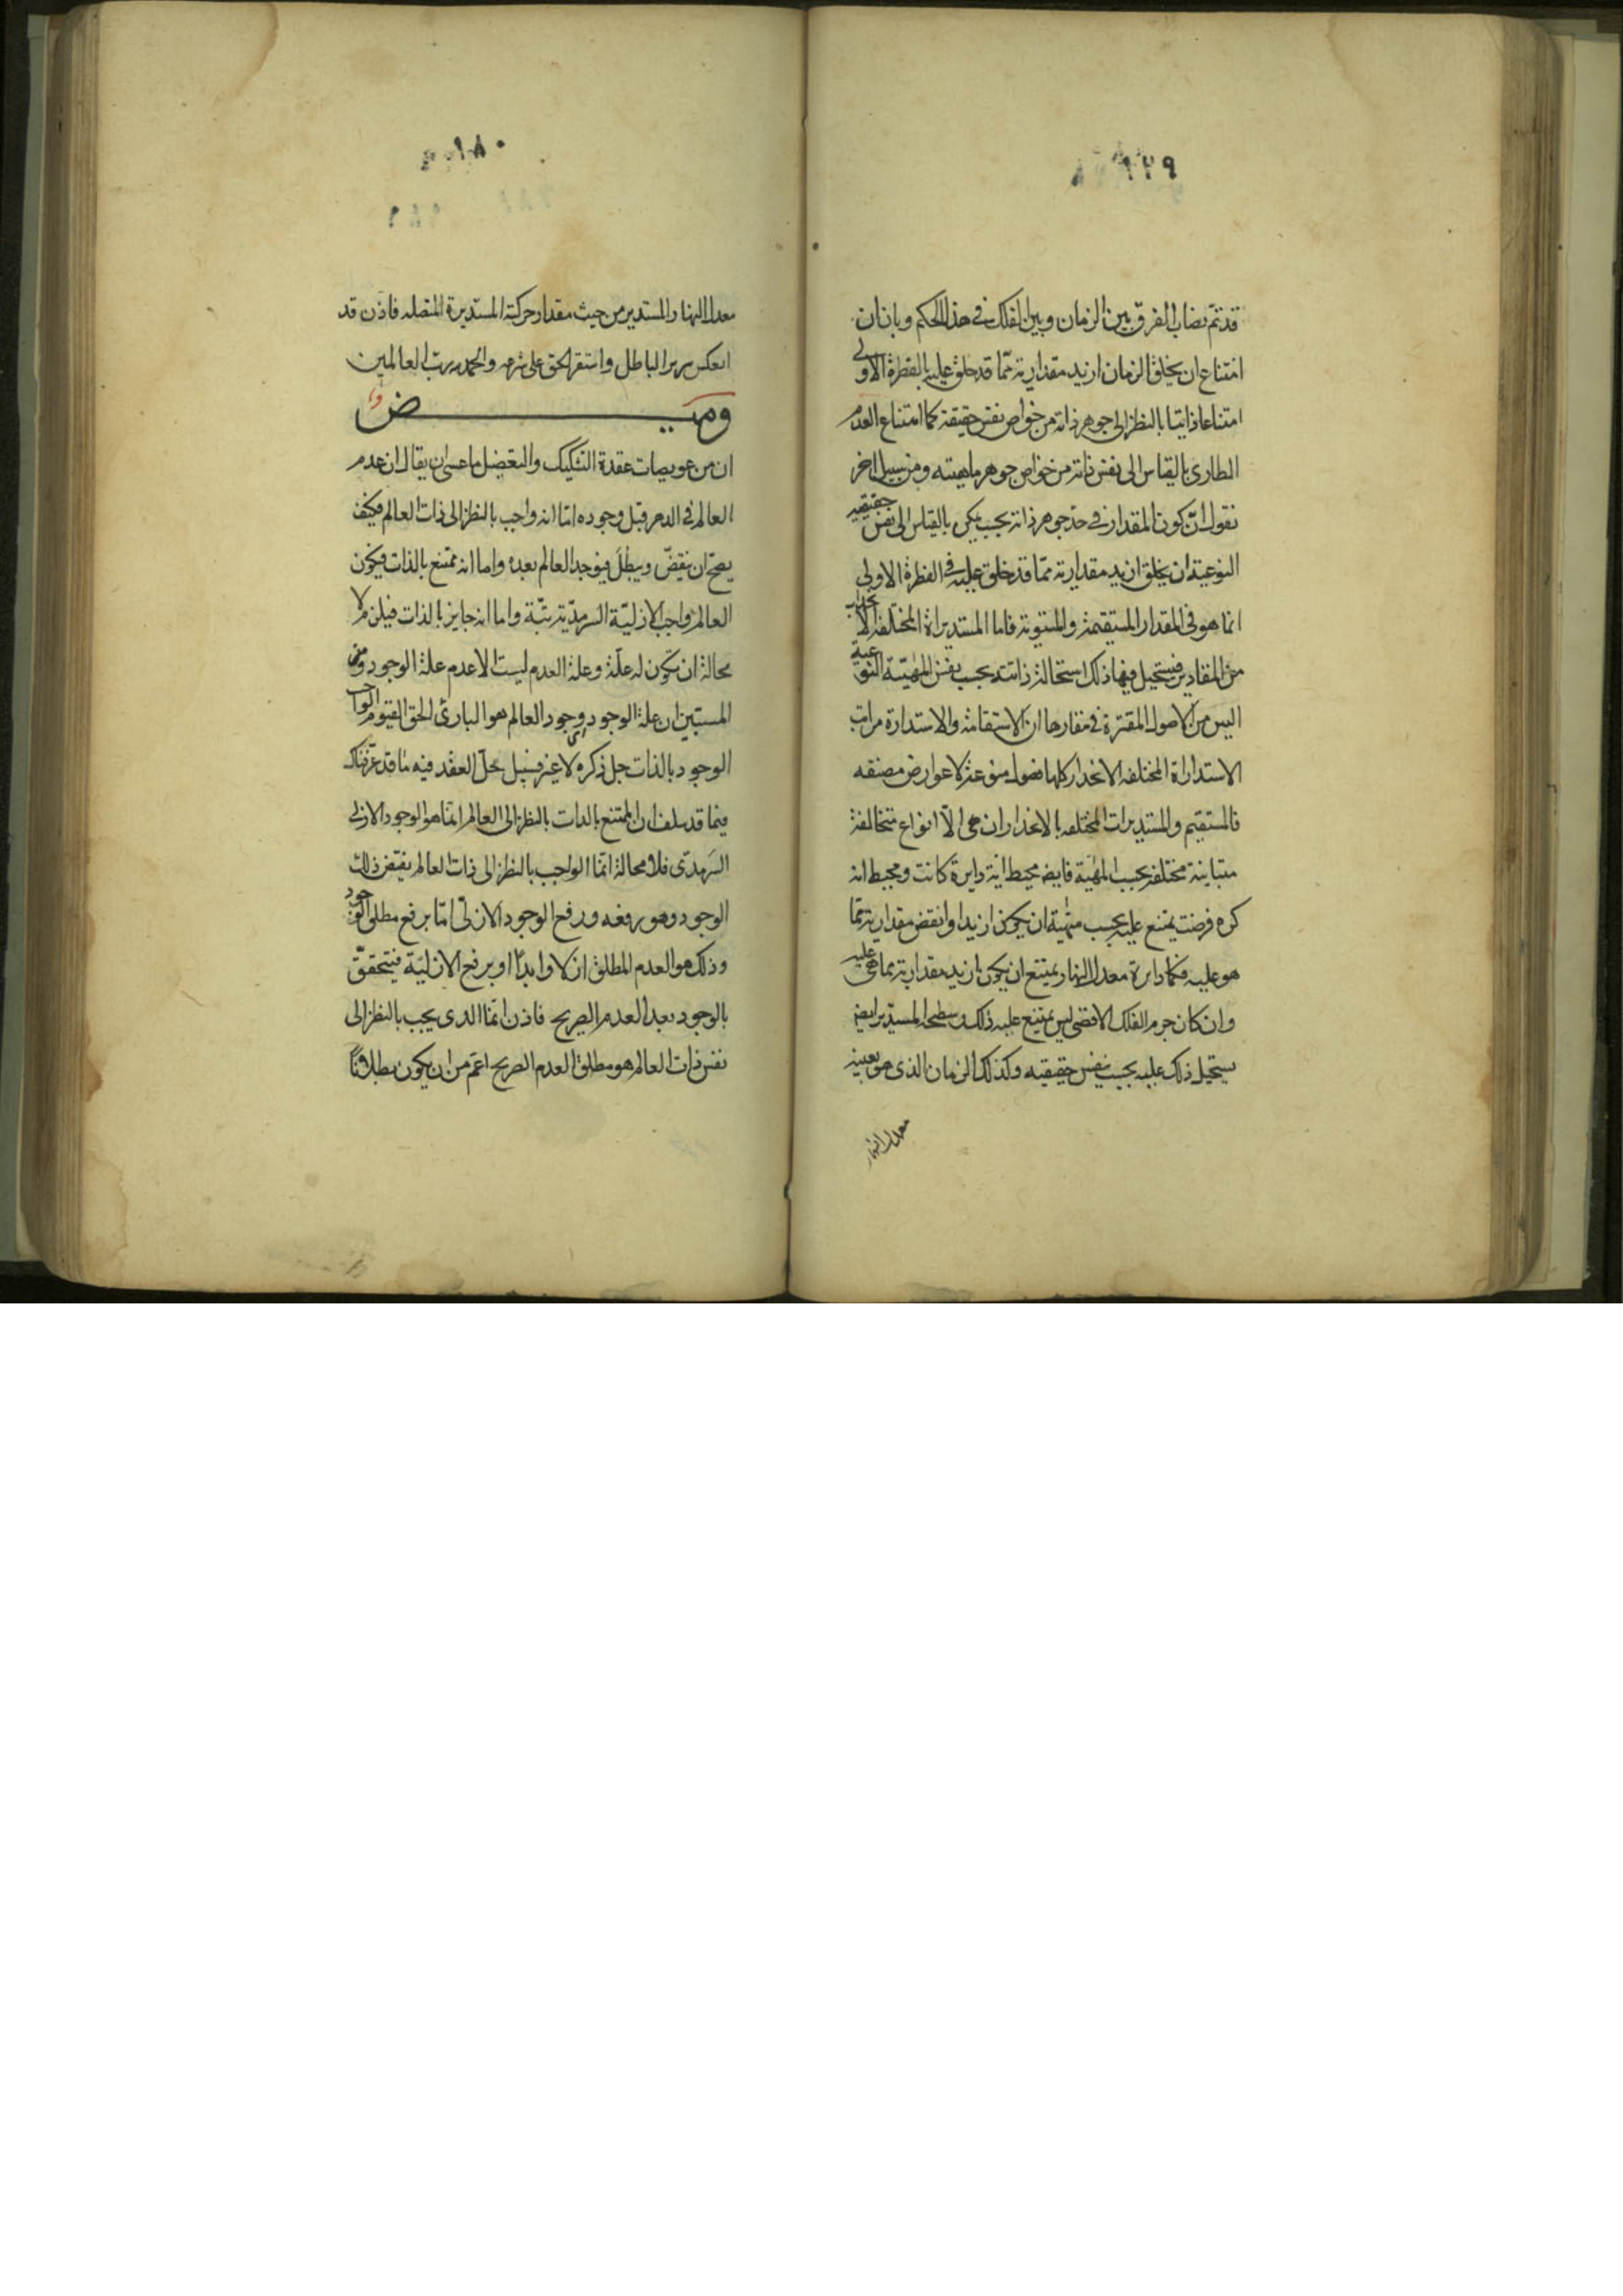 ٩٢٩
قد تم نصاب الفرق بين الزمان وبين الفلك في هذا الحكم وبان ان
امتناع ان يخلق الزمان ازيد مقدارية مما قد خلق عليه بالفطرة الاولى
امتناعا ذاتيا بالنظر الى جوهر ذاته من خواص نفس حقيقته كما امتناع العدم
الطارى بالقياس الى نفس ذاته من خواص جوهر ماهيته ومن سبيل اخر
نقول ان كون المقدار في حد جوهر ذاته بحيث يمكن بالقياس الى نفس حقيقته
النوعية ان يخلق ازيد مقدارية مما قد خلق عليه في الفطرة الاولى
انما هو في المقدار المستقيمة والمستوية فاما المستديراة المختلفة الانحداب
من المقادير فيستحيل فيها ذلك استحالة ذاتية بحسب نفس المهيّة النوعية
اليس من الاصول المقترة في مقارها ان الاستقامة والاستدارة مراتب
الاستداراة المختلفه الانحدار كلها فصول منوعة لا عوارض مصنفه
فالمستقيم والمستديرات المختلفه بالانحدار ان هى الا انواع متخالفة
متباينة مختلفة بحسب المهيّة فايضا محيط اية دايرة كانت ومحيط اية
كره فرضت يمتنع عليه بحسب مهيّته ان يكون ازيد او انقص مقدارية مما
هو عليه فكما دايرة معدل النهار يمتنع ان يكون ازيد مقدارية مما هى عليه
وان كان جرم الفلك الاقصى ليس يمتنع عليه ذلك وسطحه المستدير ايضا
يستحيل ذلك عليه بحسب نفس حقيقيه وكذلك الزمان الذى هو بعينه
معدل النهار
معدل النهار المستدير من حيث مقدار حركته المستديرة المتصله فاذن قد
انعكس سرير الباطل واستقر الحق على شرعه والحمد لله رب العالمين
وميـض
ان من عويصات عقدة التشكيك والتعضيل ما عسى ان يقال ان عدم
العالم في الدهر قبل وجوده اما انه واجب بالنظر الى ذات العالم فكيف
يصح ان ينقض ويبطل فيوجد العالم بعده واما انه ممتنع بالذات فيكون
العالم واجب الازليّة السرمديّة بتّة واما انه جايز بالذات فيلزم لا
محالة ان تكون له علّة وعلة العدم ليست الا عدم علة الوجود ومن
المستبين ان علة الوجود اى وجود العالم هو البارئ الحق القيوم الواجب
الوجود بالذات جل ذكره لا غير فسبيل حلّ العقد فيه ما قد عرّفناك
فيما قد سلف ان الممتنع بالذات بالنظر الى العالم انما هو الوجود الازلى
السرمدى فلا محالة انما الواجب بالنظر الى ذات العالم نقيض ذلك
الوجود وهو رفعه ورفع الوجود الازلى اما برفع مطلق الوجود
وذلك هو العدم المطلق ازلا وابدا او برفع الازليّة فيتحقق
بالوجود بعد العدم الصريح فاذن انما الذى يجب بالنظر الى
نفس ذات العالم هو مطلق العدم الصريح اعم من ان يكون مطلاقا